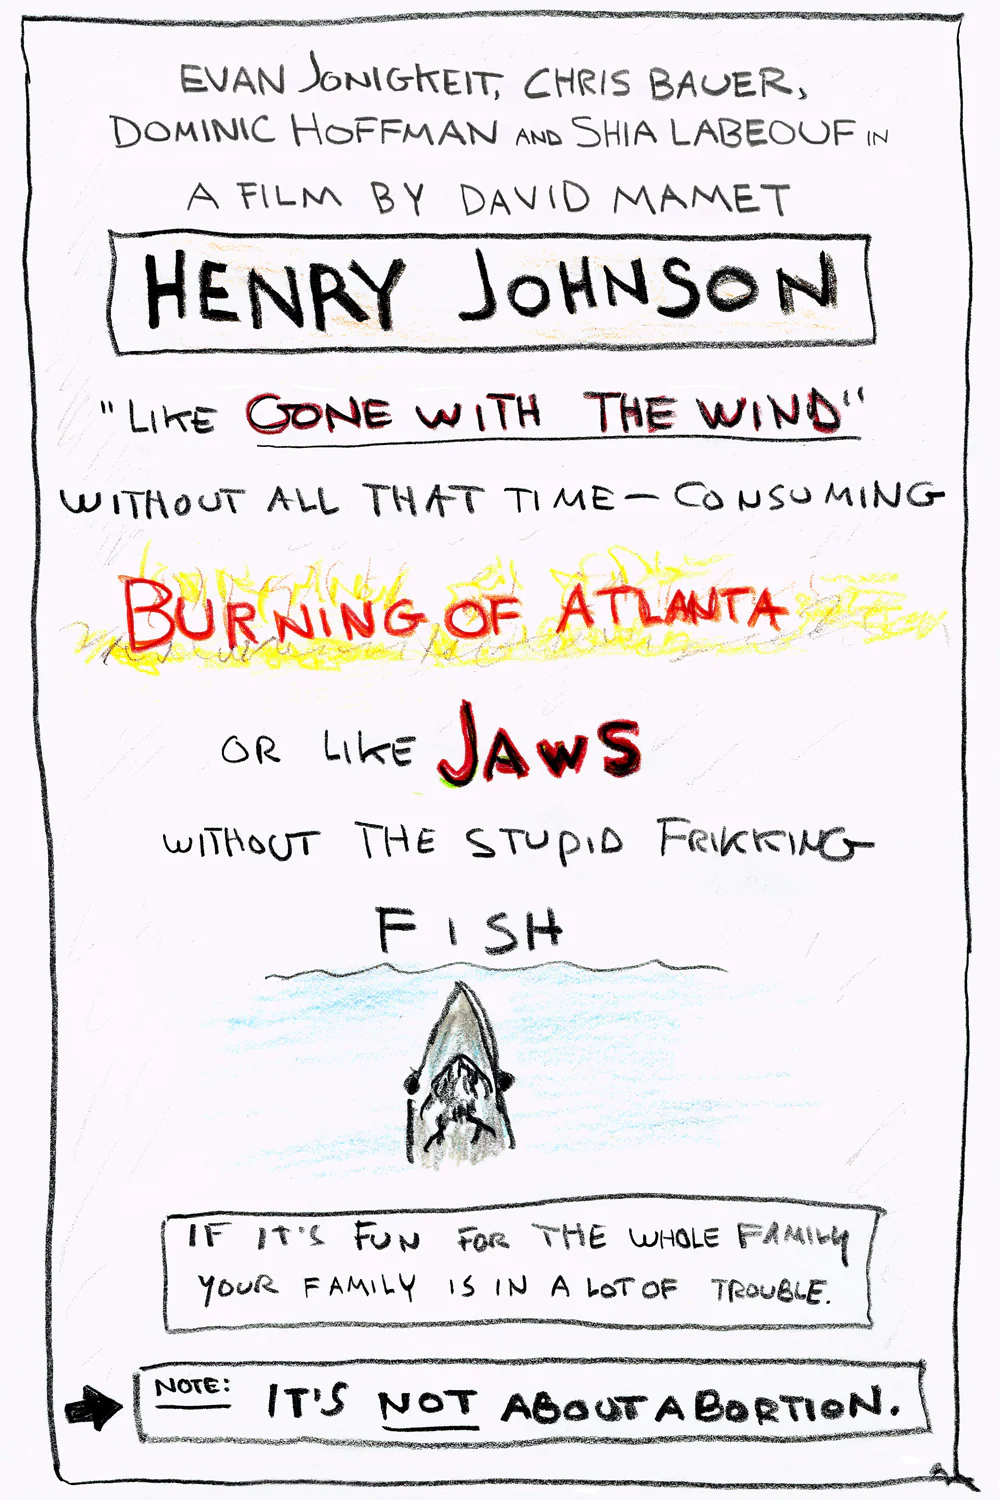 EVAN JONIGKEIT, CHRIS BAUER,
DOMINIC HOFFMAN AND SHIA LABEOUF IN
A FILM BY DAVID MAMET
HENRY JOHNSON
"LIKE GONE WITH THE WIND"
WITHOUT ALL THAT TIME-CONSUMING
BURNING OF ATLANTA
OR LIKE JAWS
WITHOUT THE STUPID FRIKKING
FISH
IF IT'S FUN FOR THE WHOLE FAMILY
YOUR FAMILY IS IN A LOT OF TROUBLE.
NOTE: IT'S NOT ABOUT ABORTION.